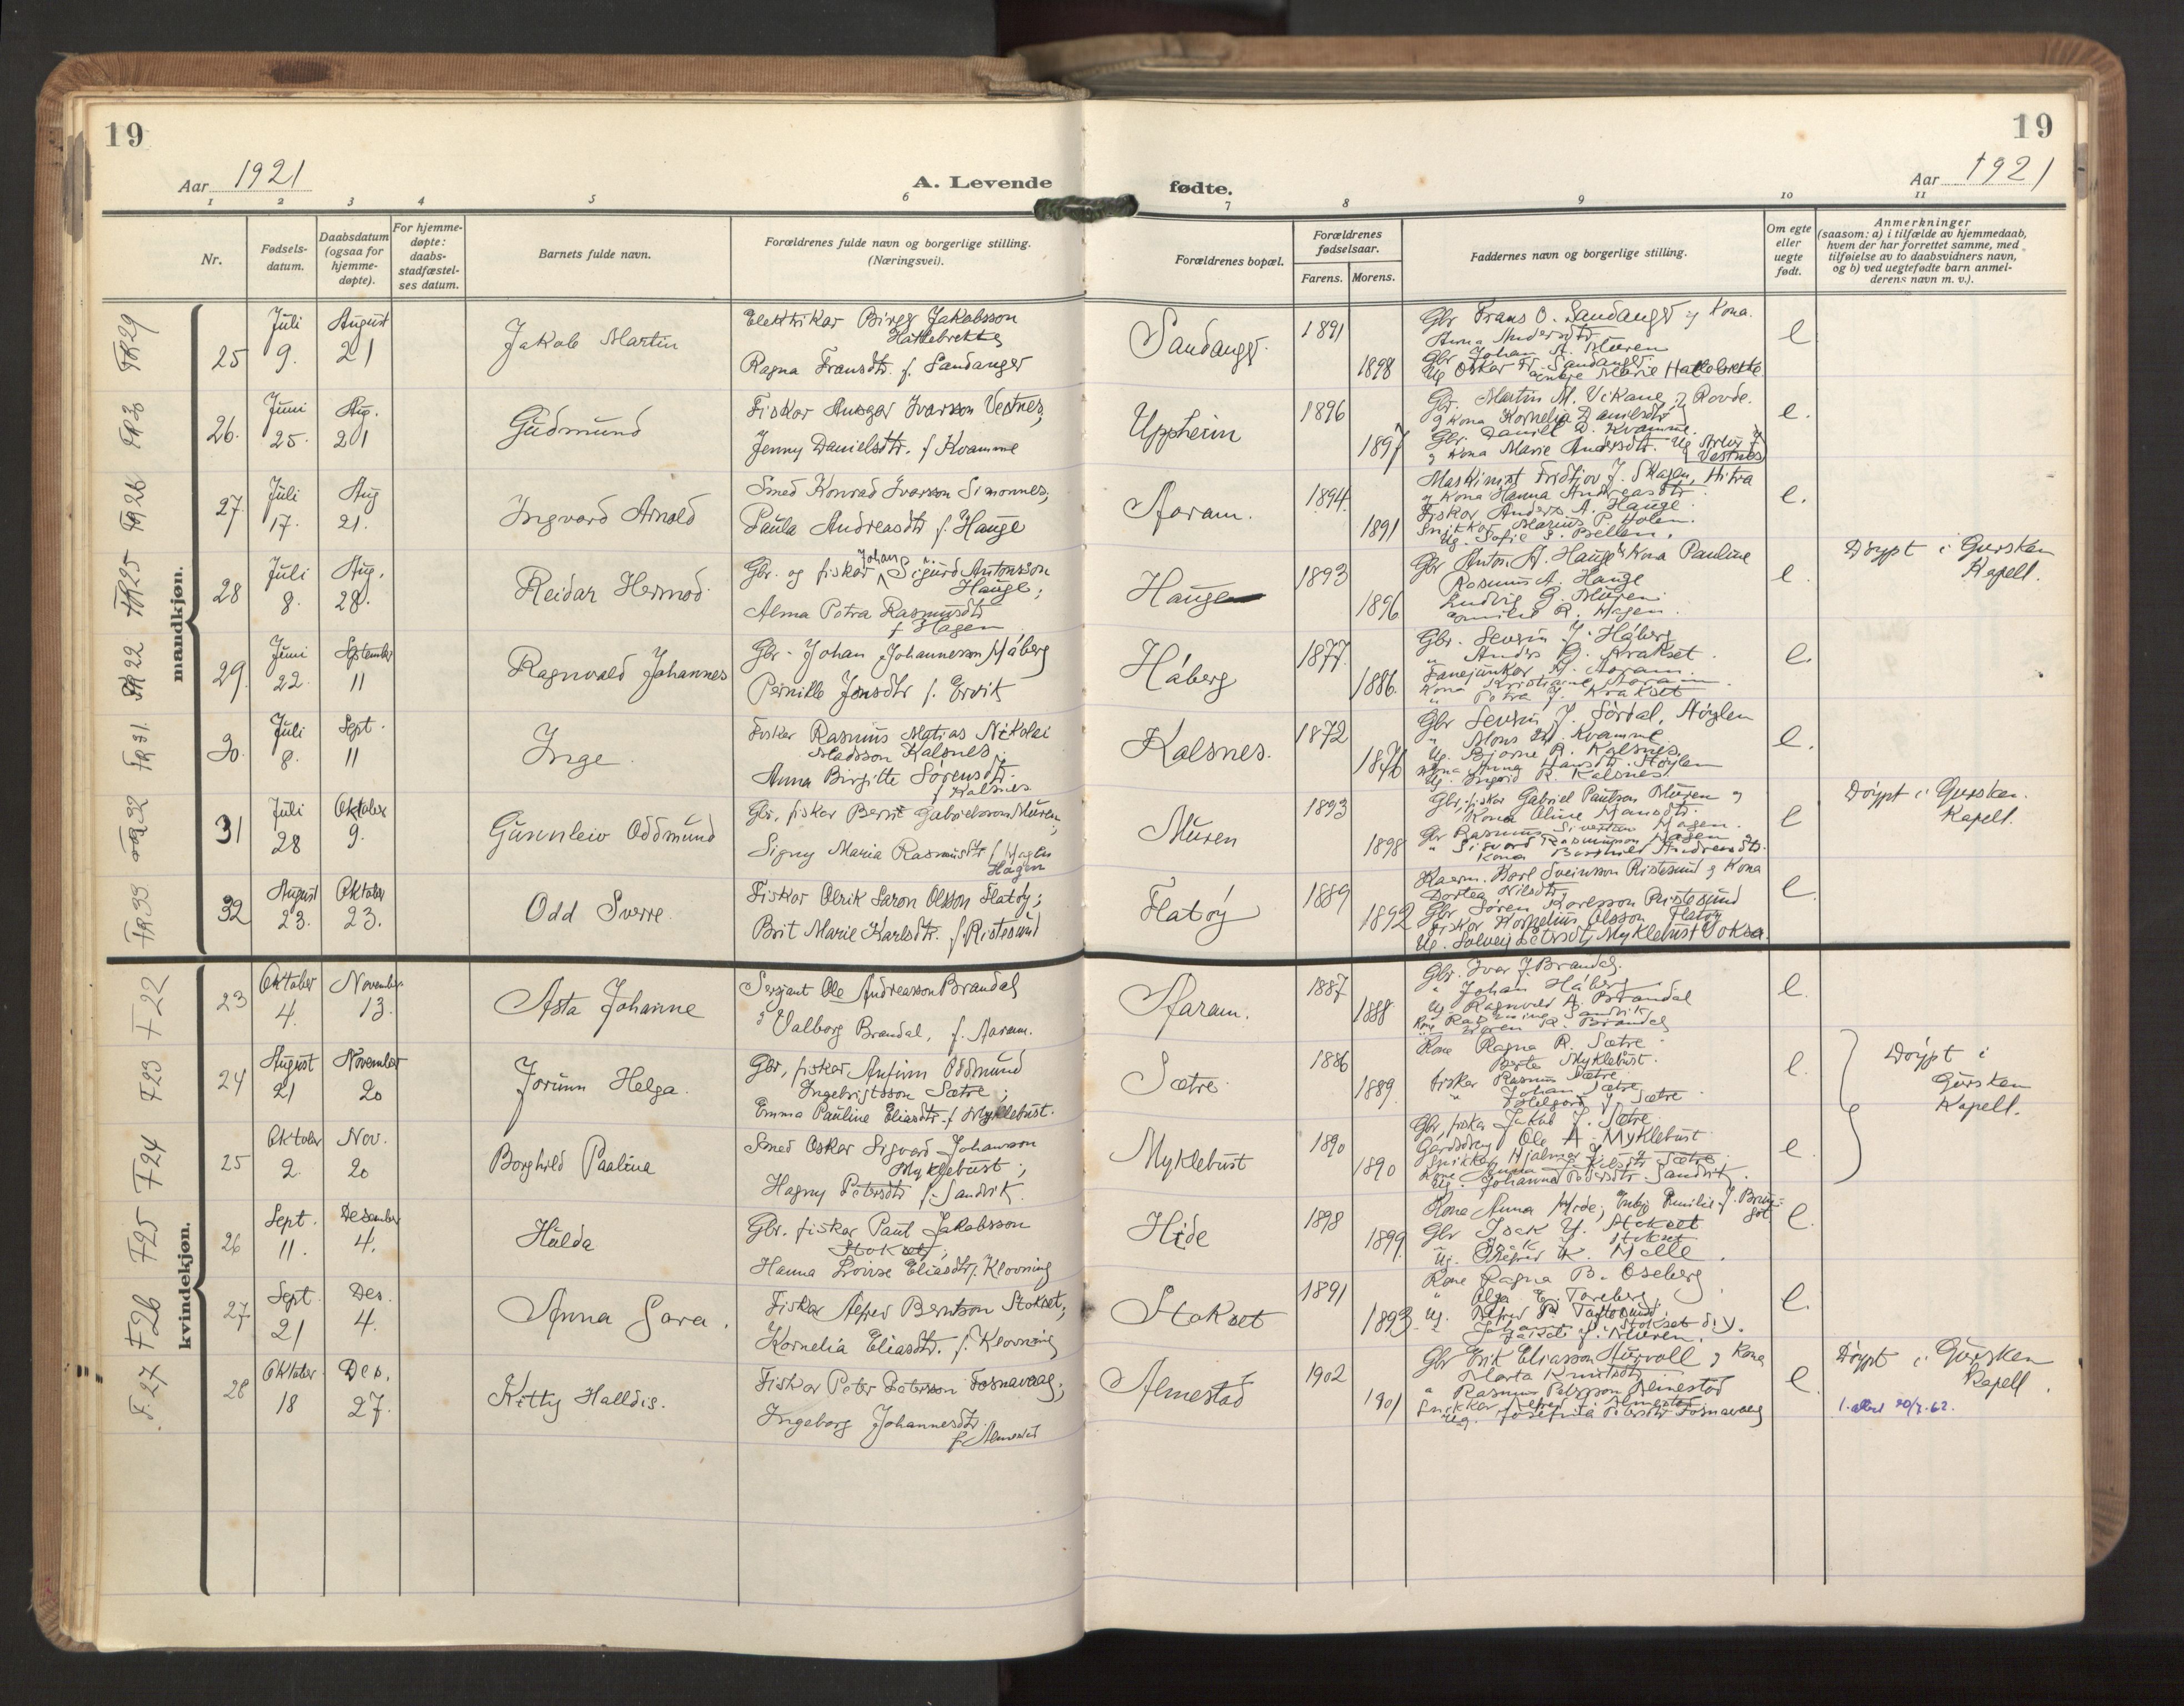 19
19
Aar 1921
A. Levende fødte.
Aar 1921
1 2 3 4 5 6 7 8 9 10 11
Nr.
Fødsels-
datum.
Daabsdatum
(ogsaa for
hjemme-
døpte).
For hjemme-
døpte:
daabs-
stadfæstel-
ses datum.
Barnets fulde navn.
Forældrenes fulde navn og borgerlige stilling.
(Næringsvei).
Forældrenes bopæl.
Forældrenes
fødselsaar.
Farens. Morens.
Faddernes navn og borgerlige stilling.
Om egte
eller
uegte
født.
Anmerkninger
(saasom: a) i tilfælde av hjemmedaab,
hvem der har forrettet samme, med
tilføielse av to daabsvidners navn,
og b) ved uegtefødte barn anmel-
derens navn m. v.).
mandkjøn.
25
Juli
9.
August
21
Jakob Martin
Elektrikar Birger Jakobsson
Hatlebrekke
Ragna Fransdtr. f. Sandanger
Sandanger
1891
1898
Gbr Frans O. Sandanger og Kona
Anna Andersdtr
Gbr Johan A. Muren
Ug Oskar Fr. Sandanger
enkje Marie Hatlebrekke
e
26.
Juni
25.
Aug.
21
Gudmund
Fiskar Ansgar Ivarson Vestnes,
Jenny Danielsdtr. f Kvamme
Uppheim
1896
1897
Gbr. Martin M. Vikane, Rovde.
og Kona Kornelia Danielsdtr
Gbr. Daniel D. Kvamme.
og Kona Marie Andersdtr. Ug
Vestnes
e.
27.
Juli
17.
Aug
21.
Ingvard Arnold
Smed Konrad Ivarson Simonnes,
Paula Andreasdtr f. Hauge
Aaram.
1894.
1891
Maskinist Fridtjov J. Skagen, Hitra
og Kona Hanna Andreasdtr.
Fiskar Anders A. Hauge
Snikkar Marius P. Holen.
Ug. Sofie
e.
28
Juli
8.
Aug.
28.
Reidar Hermod
Gbr. og fiskar Johan Sigurd Antonsson
Hauge;
Alma Petra Rasmusdtr
f Hagen
Hauge
1893
1896
Gbr Anton A. Hauge & Kona Pauline
Rasmus A. Hauge
Ludvig G. Muren
R. Hagen.
e.
Döypt i Gursken
Kapell.
29.
Juni
22.
September
11
Ragnvald Johannes
Gbr. Johan Johannesson Håberg
Pernille Jonsdtr f. Ervik
Håberg
1877.
1886.
Gbr. Severin J. Håberg
" Anders G. Krakset
Fanejunkar H. Aaram.
Kona Kristianne Aaram.
" Petra J. Krakset
e.
30.
Juli
8.
Sept.
11
Inge
Fisker Rasmus Matias Nikolai
Madsson Kalsnes
Anna Birgitte Sörensdtr.
f Kalsnes
Kalsnes.
1872
1876
Gbr Severin J. Sördal, Höylen
" Mons M. Kvamme
Ug. Bjarne R. Kalsnes.
Kona Anna Hansdtr. Stöylen
Ug. Ingrid R. Kalsnes.
e.
31
Juli
28
Oktober
9.
Gunnleiv Oddmund
Gbr, fiskar Bernt Gabrielsson Muren,
Signy Maria Rasmusdtr f. Hagen
Hagen
Muren
1893
1898
Gbr, fiskar Gabriel Paulson Muren og
Kona Oline Hansdtr.
Gbr Rasmus Sivertson Hagen.
" Sigvard Rasmusson Hagen og
Kona Borghild Andreasdtr.
e
Döypt i Gursken.
Kapell.
32
August
23.
Oktober
23.
Odd Sverre.
Fiskar Olrik Laron Olsson Flatöy;
Brit Marie Karlsdtr. f. Ristesund
Flatöy
1889
1892
Kaarm. Karl Sveinsson Ristesund og Kona
Dortea Nilsdtr
Gbr Sören Karlsson Ristesund
Fiskar Kornelius Olsson Flatöy
Ug. Solveig Petersdtr Myklebust Voksa.
e.
kvindekjøn.
23
Oktober
4.
November
13.
Asta Johanne
Sersjant Ole Andreasson Brandal
og Valborg Brandal, f. Aaram.
Aaram.
1887
1888
Gbr. Ivar J. Brandal.
" Johan Håberg.
Ug. Ragnvald A. Brandal
Kone Sandvik
R. Brandal
e.
24
August
21
November
20
Jorunn Helga.
Gbr, fiskar Anfinn Oddmund
Ingebrigtsson Sætre;
Emma Pauline Eliasdtr. f Myklebust.
Sætre
1886
1889.
Kone Ragna R. Sætre
" Berte Myklebust.
Fiskar Rasmus Sætre
" Johan Sætre
" J. Sætre
e.
Döypt i
Gursken
Kapell.
25
Oktober
2.
Nov.
20
Borghild Paaline
Smed Oskar Sigvard Johansson
Myklebust;
Hagny Petersdtr f. Sandvik.
Myklebust
1890
1890
Gbr, fiskar Jakob J. Sætre
Gardsdreng Ole A. Myklebust
Snikkar Hjalmar J. Sætre
Kone Anna
Ug. Johanna Pedersdtr Sandvik.
e.
26
Sept.
11.
Desember
4.
Hulda
Gbr. fiskar Paul Jakobsson
Stokset;
Hanna Lovise Eliasdtr f. Klovning
Hide
1898
1899.
Kona Anna Hide; Enkje Emilie J.
Gbr Isak Stokset
" Isak Stokset
Ug. K. Molle
e.
27
Sept.
21
Des.
4.
Anna Gora.
Fiskar Alfred Berntson Stokset;
Kornelia Eliasdtr. f. Klovning
Stokset
1891
1893
Kone Ragna B. Oseberg
" Olga E. Toreberg
Ug. Alfred
J. Muren.
e.
28
Oktober
18
Des.
27.
Kitty Halldis.
Fiskar Peter Peterson Fosnavaag;
Ingeborg Johannesdtr.
f. Almestad
Almestad
1902
1901
Gbr Erik Eliasson Hurvoll og Kona
Marta Knutsdtr
" Rasmus Peterson Almestad
Snikkar Alfred J. Almestad
Ug. Josefina Petersdtr Fosnavaag
e.
Döypt i Gursken
Kapell.
1. attest 20/7-62.
FR 29
FR 26
FR 25
22
FR 31.
FR 32
FR 33
F 22
F 23
F 24
F 25
F 26
F. 27